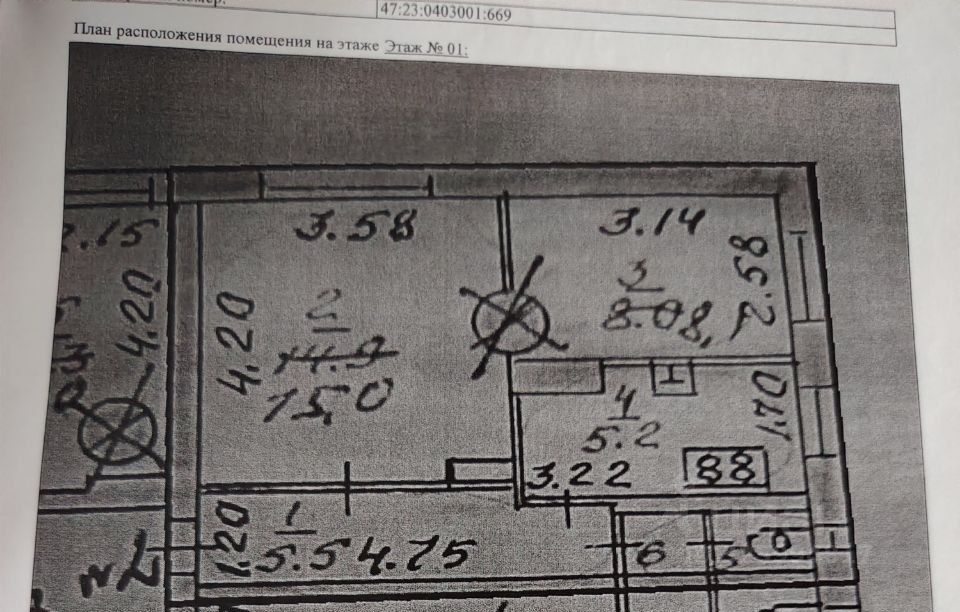 47:23:0403001:669
План расположения помещения на этаже Этаж № 01:
3.58
3.14
4.20
4.20
2
14.9
15,0
3
8.08,
2.58
4
5.2
1.70
3.22
1.20
1
5.5
4.75
6
5